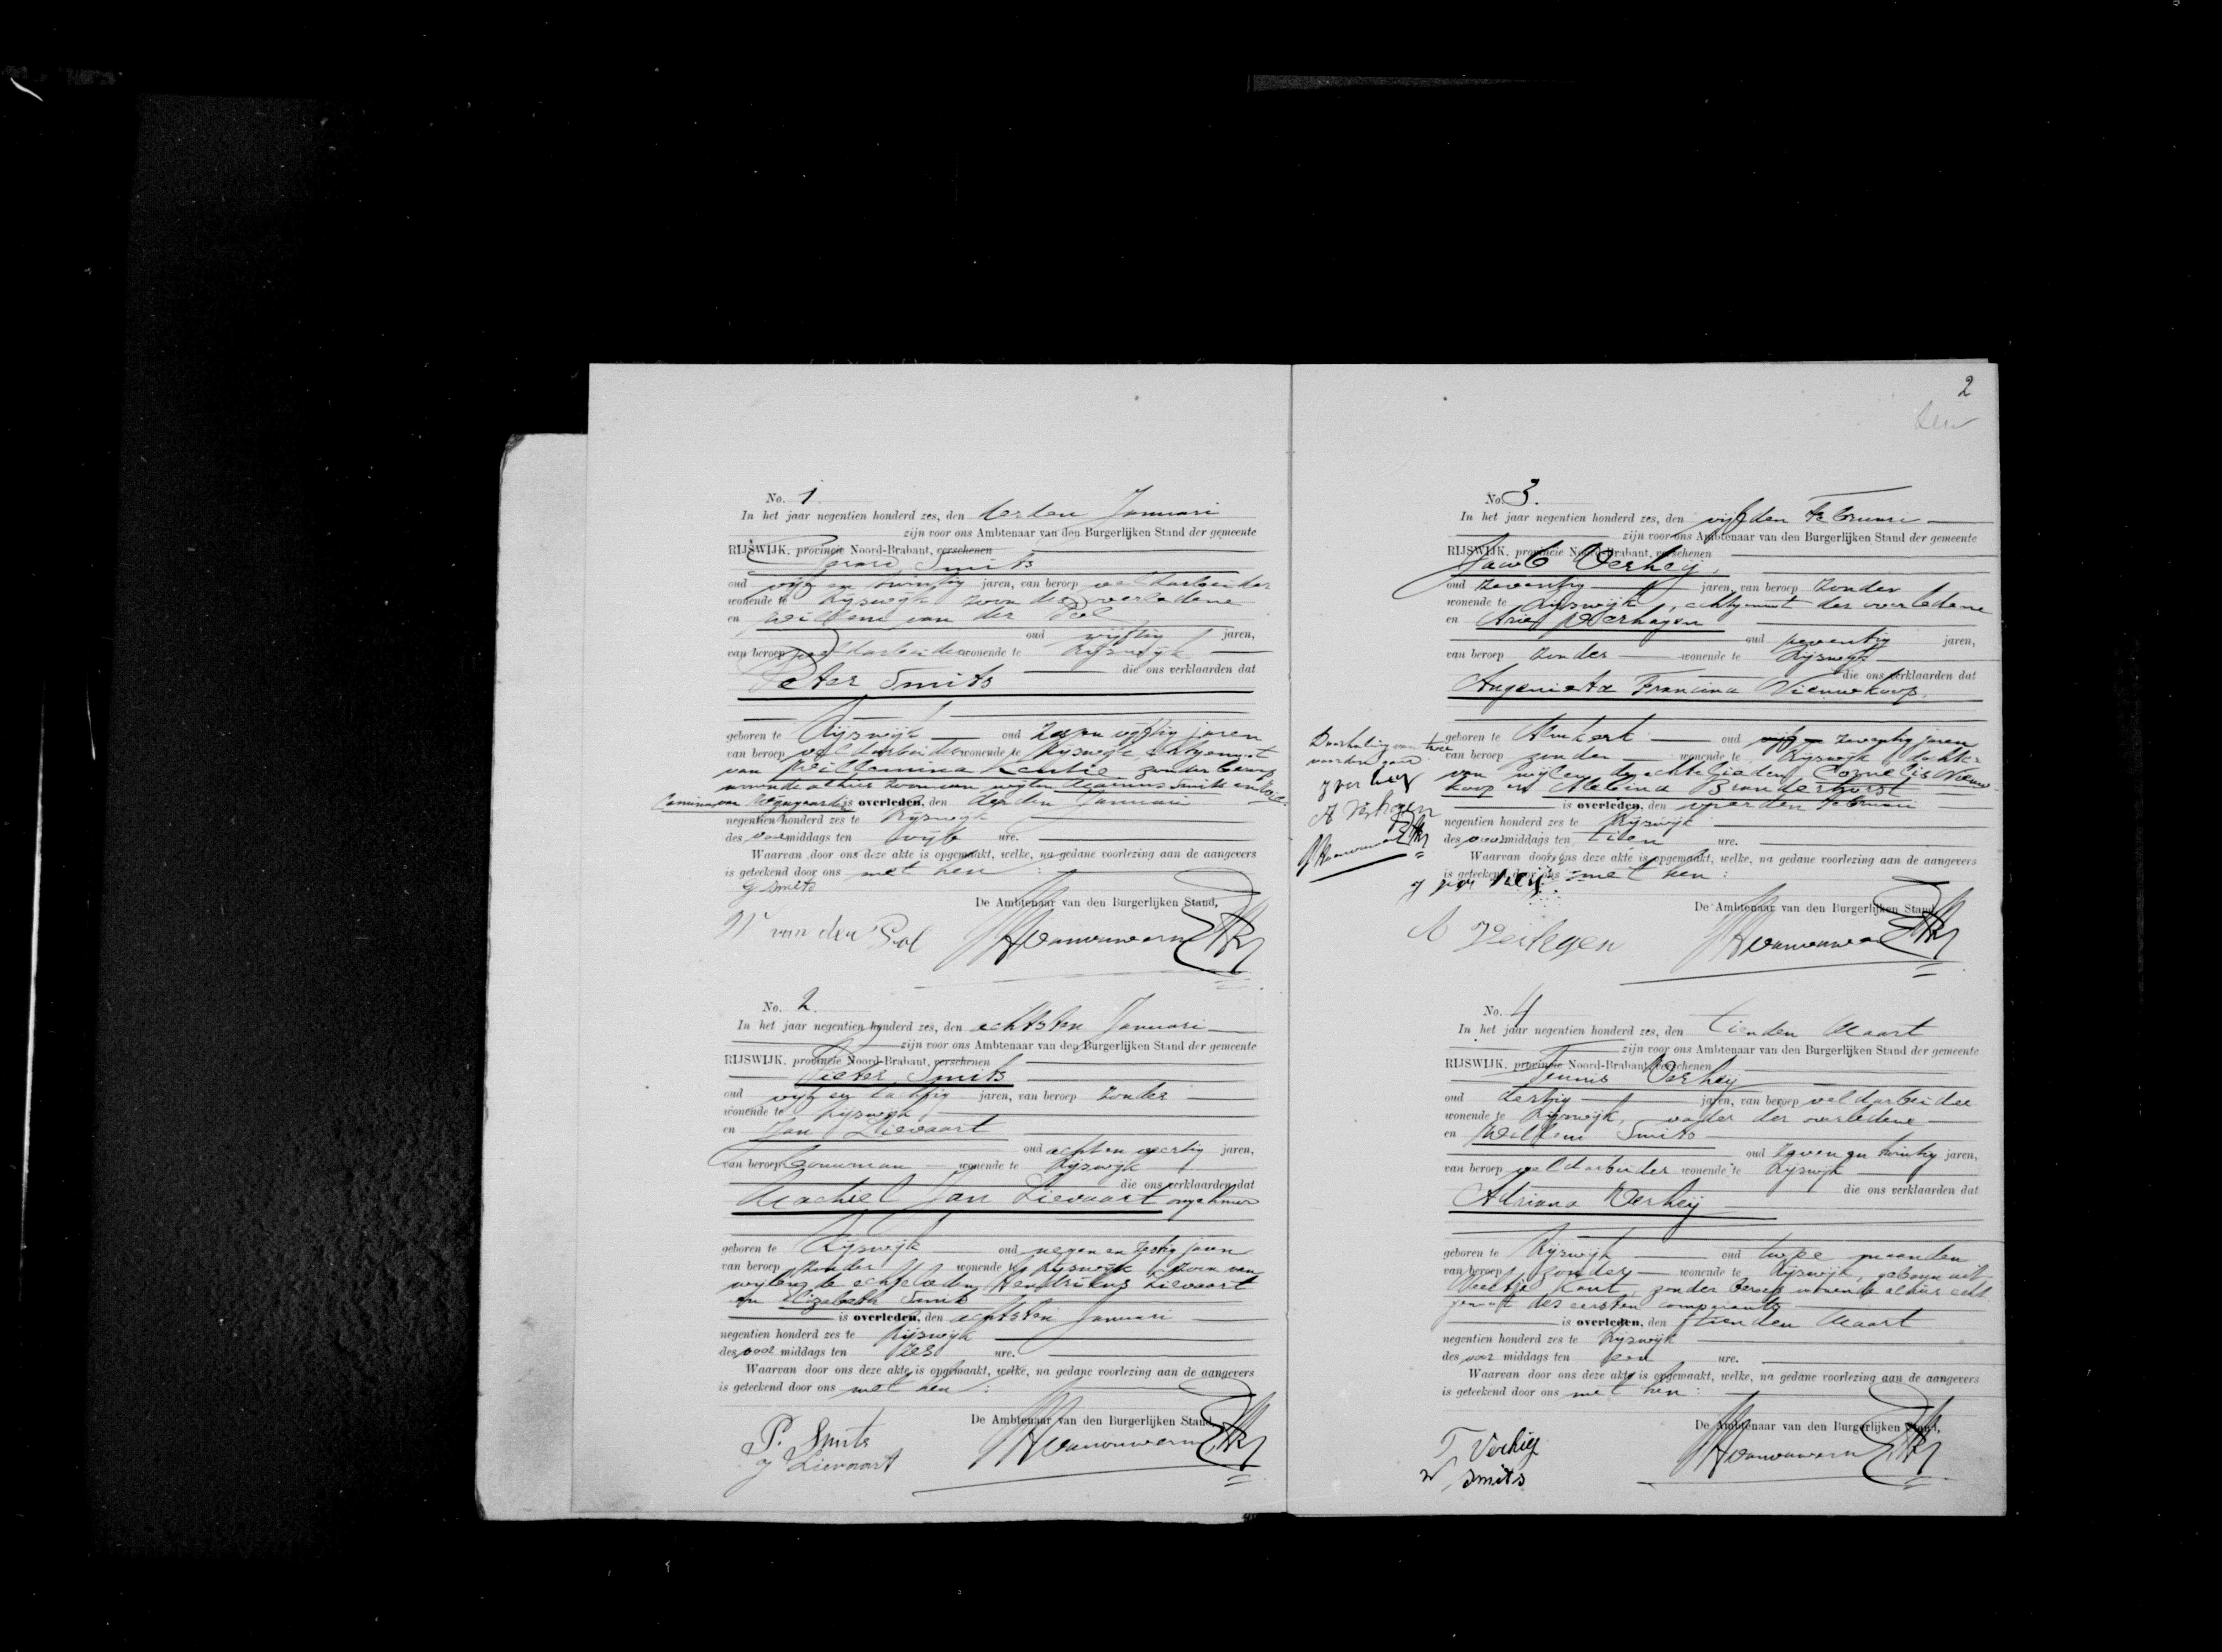 No. 1
In het jaar negentien honderd zes, den derden Januari
zijn voor ons Ambtenaar van den Burgerlijken Stand der gemeente
RIJSWIJK, provincie Noord-Brabant, verschenen
Gerard Smits
oud vijf en twintig jaren, van beroep veldarbeider
wonende te Rijswijk zoon des overledene
en Willem van der Pol
oud vijftig jaren,
van beroep veldarbeider wonende te Rijswijk
die ons verklaarden dat
Peter Smits
geboren te Rijswijk oud zeven vijftig jaren
van beroep veldarbeider wonende te Rijswijk, echtgenoot
van Willemina Kentie zonder beroep
wonende alhier zoon van wijlen Marinus Smits en
is overleden, den derden Januari
negentien honderd zes te Rijswijk
des voormiddags ten vijf ure.
Waarvan door ons deze akte is opgemaakt, welke, na gedane voorlezing aan de aangevers
is geteekend door ons met hen :
G Smits
De Ambtenaar van den Burgerlijken Stand,
W van der Pol
No. 2
In het jaar negentien honderd zes, den achtsten Januari
zijn voor ons Ambtenaar van den Burgerlijken Stand der gemeente
RIJSWIJK, provincie Noord-Brabant, verschenen
Pieter Smits
oud vijf en tachtig jaren, van beroep zonder
wonende te Rijswijk
en Jan Lievaart
oud acht en veertig jaren,
van beroep bouwman wonende te Rijswijk
die ons verklaarden dat
Machiel Jan Lievaart ongehuwd
geboren te Rijswijk oud negen en zestig jaren
van beroep zonder wonende te Rijswijk zoon van
wijlen de echtelieden Hendrikus Lievaart
en Elizabeth Smits
is overleden, den achtsten Januari
negentien honderd zes te Rijswijk
des voor middags ten zes ure.
Waarvan door ons deze akte is opgemaakt, welke, na gedane voorlezing aan de aangevers
is geteekend door ons met hen :
De Ambtenaar van den Burgerlijken Stand,
P. Smits
J Lievaart
2
No. 3.
In het jaar negentien honderd zes, den vijfden Februari
zijn voor ons Ambtenaar van den Burgerlijken Stand der gemeente
RIJSWIJK, provincie Noord-Brabant, verschenen
Jacob Verheij,
oud zeventig jaren, van beroep zonder
wonende te Rijswijk, echtgenoot der overledene
en Arie Verhagen
oud zeventig jaren,
van beroep zonder wonende te Rijswijk
die ons verklaarden dat
Angenieta Francina Nieuwkoop
geboren te Almkerk oud vijf en zeventig jaren
van beroep zonder wonende te Rijswijk dochter
van wijlen de echtelieden Cornelis Nieuw-
koop en Albina Branderhorst
is overleden, den vierden Februari
negentien honderd zes te Rijswijk
des voormiddags ten tien ure.
Waarvan door ons deze akte is opgemaakt, welke, na gedane voorlezing aan de aangevers
is geteekend door ons met hen :
Doorhaling van twee
woorden goed
J ver heij
A Verhagen
J ver heij
De Ambtenaar van den Burgerlijken Stand,
A Verhagen
No. 4
In het jaar negentien honderd zes, den tienden Maart
zijn voor ons Ambtenaar van den Burgerlijken Stand der gemeente
RIJSWIJK, provincie Noord-Brabant, verschenen
Teunis Verheij
oud dertig jaren, van beroep veldarbeider
wonende te Rijswijk, vader der overledene
en Willem Smits
oud zeven en twintig jaren,
van beroep veldarbeider wonende te Rijswijk
die ons verklaarden dat
Adriana Verheij
geboren te Rijswijk oud twee maanden
van beroep zonder wonende te Rijswijk, geboren uit
Kant, zonder beroep wonende alhier echt
genoot des eersten comparants
is overleden, den tienden Maart
negentien honderd zes te Rijswijk
des voor middags ten een ure.
Waarvan door ons deze akte is opgemaakt, welke, na gedane voorlezing aan de aangevers
is geteekend door ons met hen :
De Ambtenaar van den Burgerlijken Stand,
T Verheij
W Smits